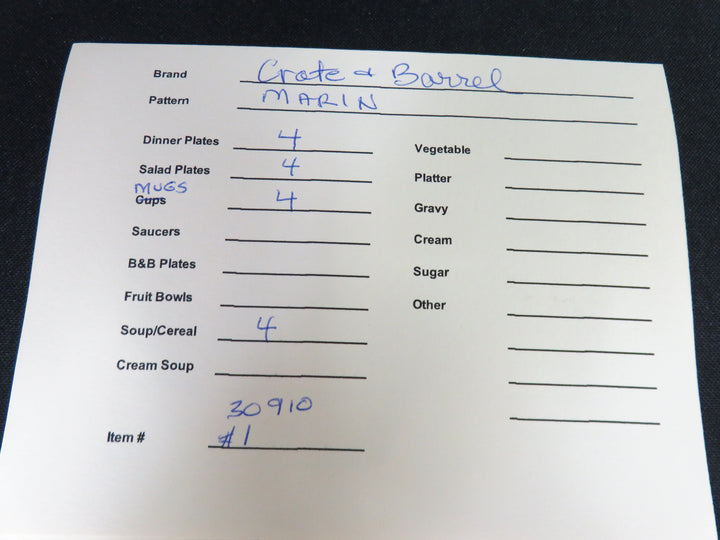 Brand Crate & Barrel
Pattern MARIN
Dinner Plates 4
Salad Plates 4
MUGS
Cups 4
Saucers
B&B Plates
Fruit Bowls
Soup/Cereal 4
Cream Soup
30910
Item # #1
Vegetable
Platter
Gravy
Cream
Sugar
Other